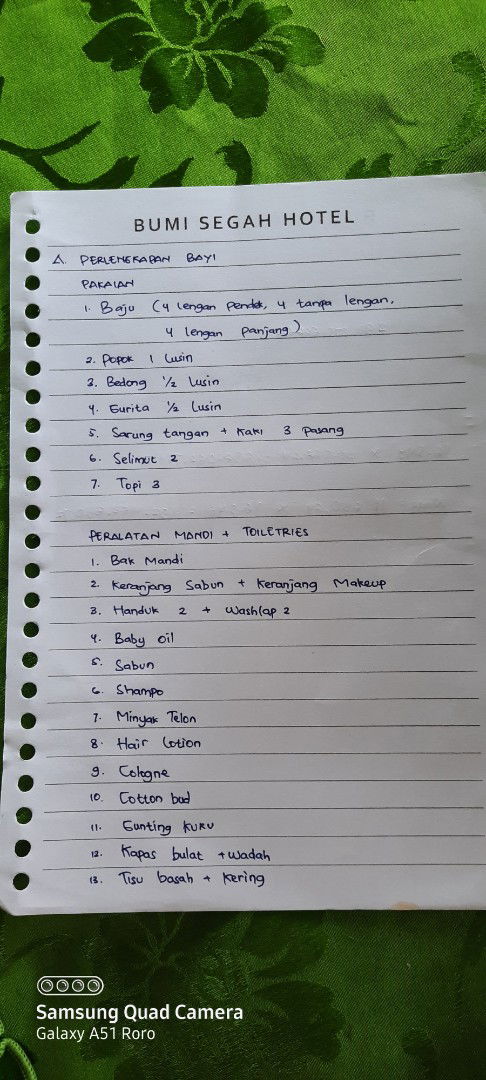 BUMI SEGAH HOTEL
A. PERLENGKAPAN BAYI
PAKAIAN
1. Baju (4 lengan pendek, 4 tanpa lengan,
4 lengan panjang)
2. Popok 1 lusin
3. Bedong 1/2 lusin
4. Gurita 1/2 lusin
5. Sarung tangan + kaki 3 pasang
6. Selimut 2
7. Topi 3
PERALATAN MANDI + TOILETRIES
1. Bak Mandi
2. Keranjang Sabun + Keranjang Makeup
3. Handuk 2 + Washlap 2
4. Baby oil
5. Sabun
6. Shampo
7. Minyak Telon
8. Hair lotion
9. Cologne
10. Cotton bud
11. Gunting kuku
12. Kapas bulat + wadah
13. Tisu basah + kering
Samsung Quad Camera
Galaxy A51 Roro